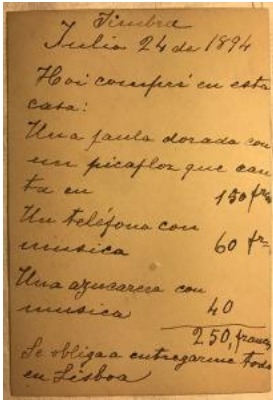 Jinebra
Julio 24 de 1894
Hoi comprí en esta
casa:
Una jaula dorada con
un picaflor que can
ta en 150 frs
Un teléfono con
musica 60 frs
Una azucarera con
musica 40
250, francos
Se obliga a entregarme todo
en Lisboa